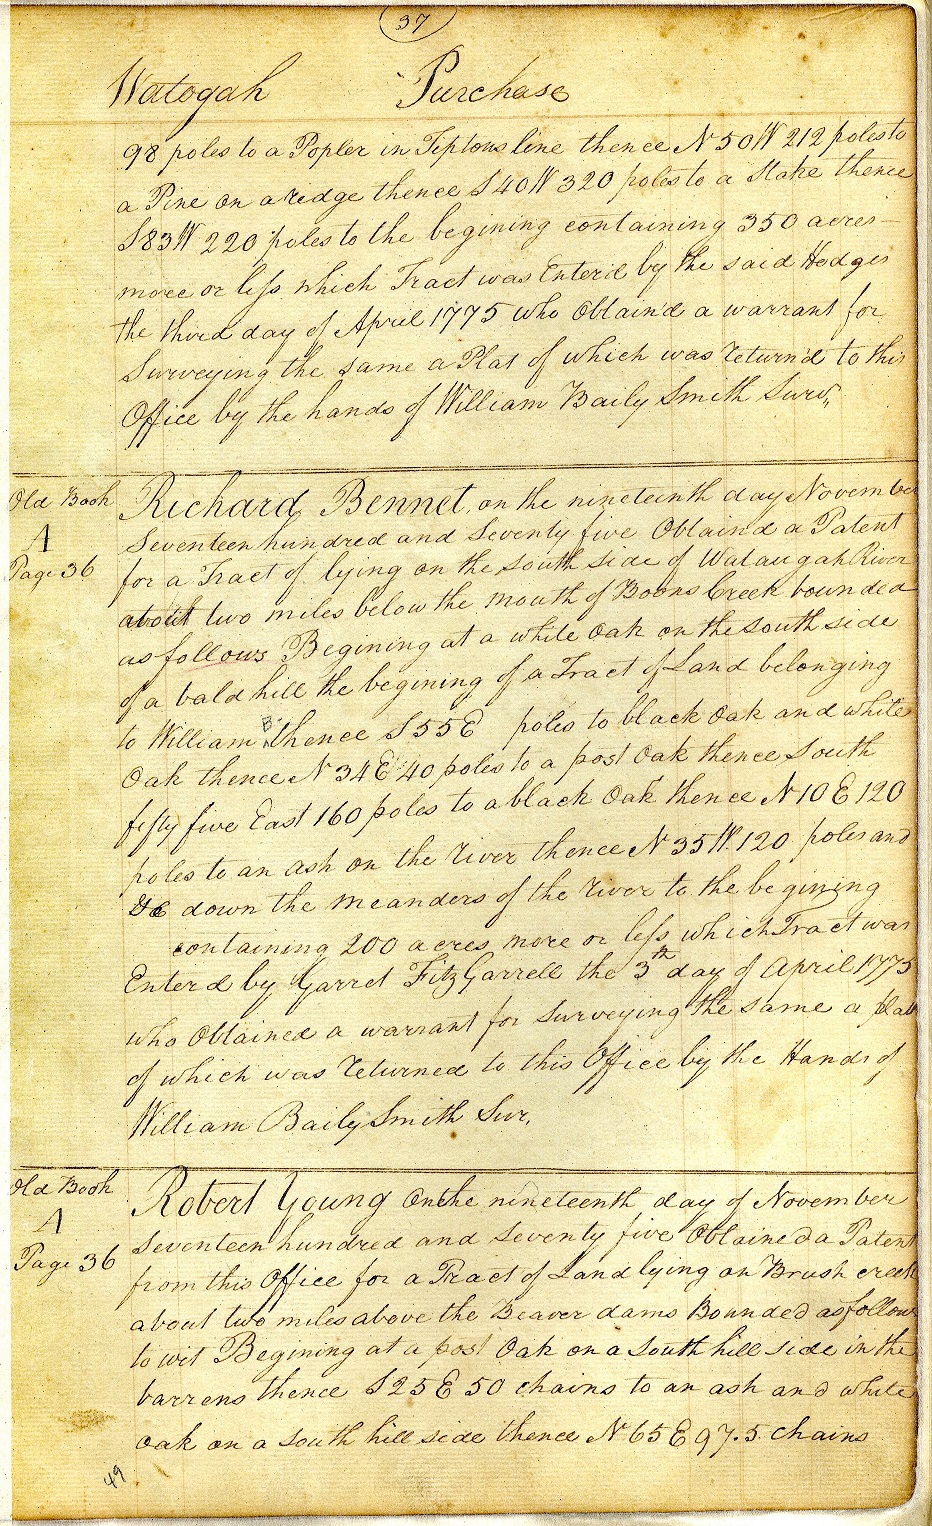 37
Watogah Purchase
98 poles to a Popler in Tiptons line thence N 50 W 212 poles to
a Pine on a ridge thence S 40 W 320 poles to a Stake thence
S 83 W 220 poles to the begining containing 350 acres
more or less which Tract was Enter'd by the said Hodges
the third day of April 1775 who Obtain'd a warrant for
Surveying the same a Plat of which was return'd to this
Office by the hands of William Baily Smith Surv.,,
Old Book
A
Page 36
Richard Bennet on the nineteenth day November
Seventeen hundred and Seventy five Obtain'd a Patent
for a Tract of lying on the south side of Mataugah River
about two miles below the mouth of Boons Creek bounded
as follows Begining at a white Oak on the south side
of a bald hill the begining of a Tract of Land belonging
to William B. thence S 55 E poles to black Oak and white
Oak thence N 34 E 40 poles to a post Oak thence South
fifty five East 160 poles to a black Oak thence N 10 E 120
poles to an ash on the river thence N 35 W 120 poles and
&c down the meanders of the river to the begining
containing 200 acres more or less which Tract was
Enterd by Garret Fitz Garrell the 3th day of April 1775
who Obtained a warrant for surveying the same a plat
of which was returned to this Office by the Hands of
William Baily Smith Sur.
Old Book
A
Page 36
Robert Young On the nineteenth day of November
Seventeen hundred and Seventy five Obtained a Patent
from this Office for a Tract of Land lying on Brush creek
about two miles above the Beaver dams Bounded as follows
to wit Begining at a post Oak on a South hill side in the
barrens thence S 25 E 50 chains to an ash and white
Oak on a south hill side thence N 65 E 97.5 chains
49